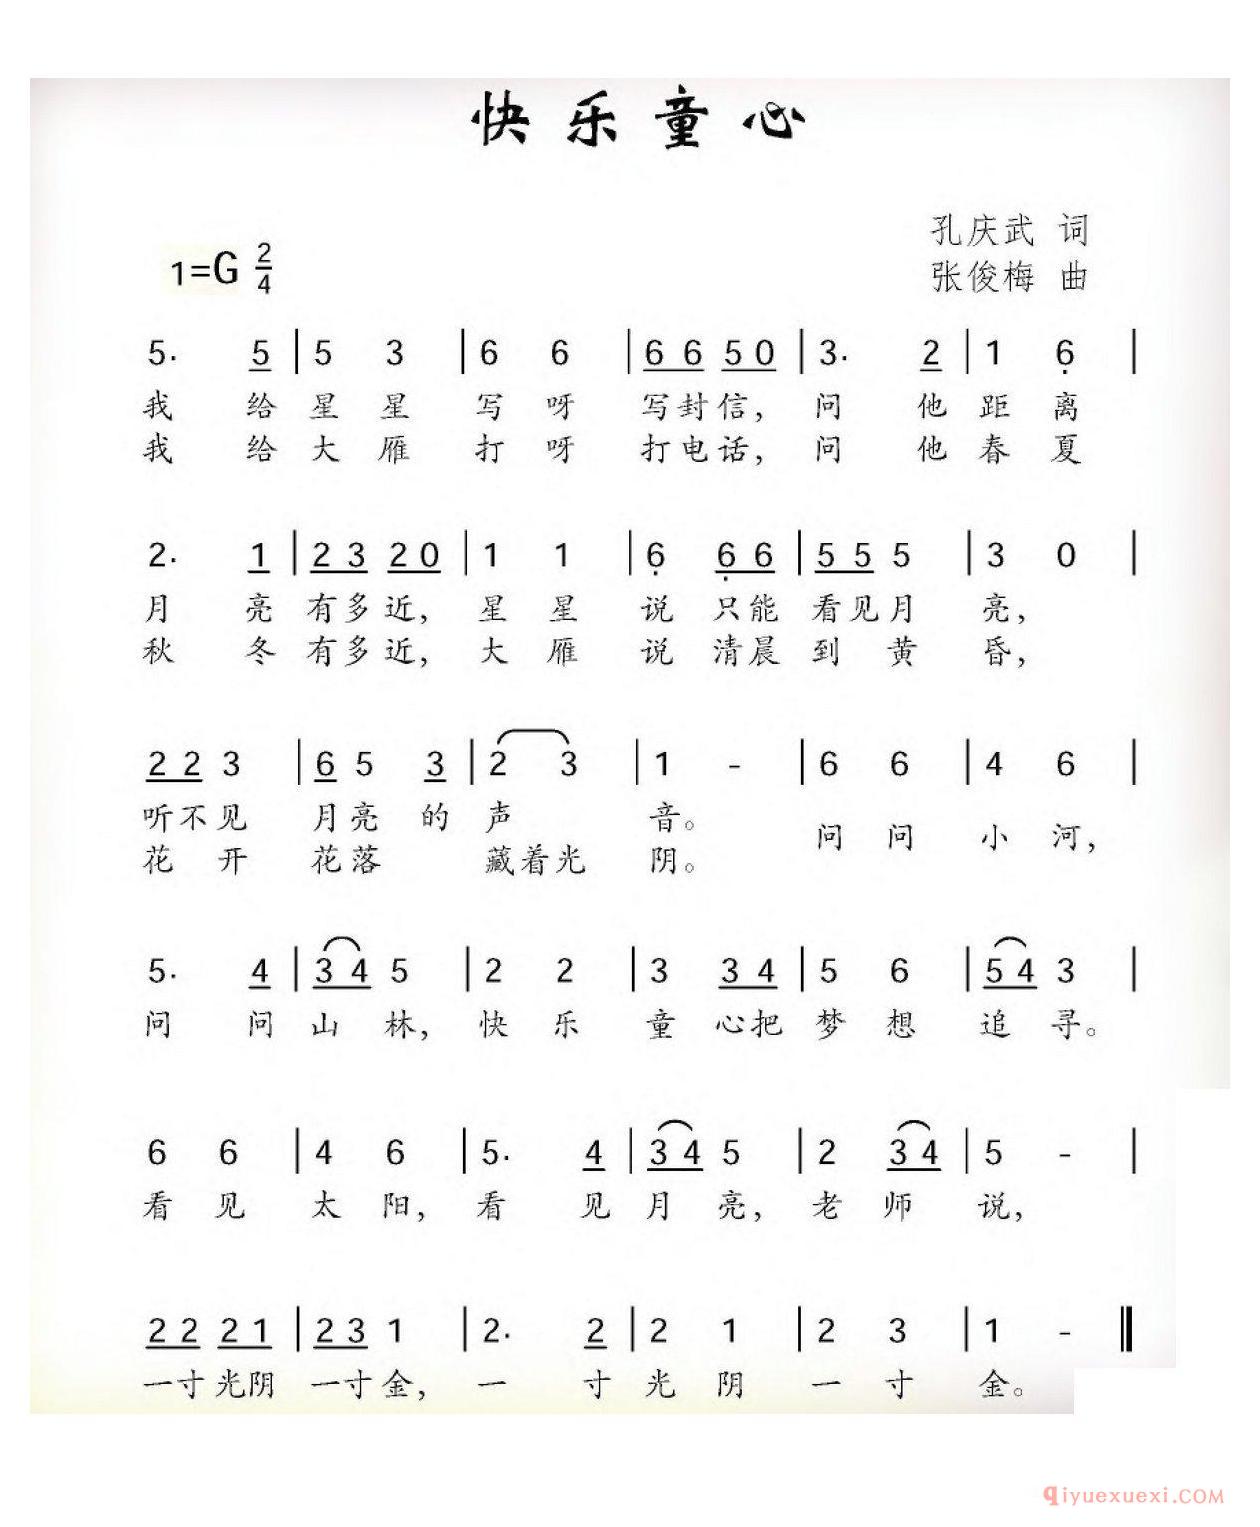 快乐童心
孔庆武 词
1=G 2/4
张俊梅 曲
5. 5 | 5 3 | 6 6 | 6 6 5 0 | 3. 2 | 1 6 |
我 给 星 星 写 呀 写封信, 问 他 距 离
我 给 大 雁 打 呀 打电话, 问 他 春 夏
2. 1 | 2 3 2 0 | 1 1 | 6 6 6 | 5 5 5 | 3 0 |
月 亮 有多近, 星 星 说 只能 看见月 亮,
秋 冬 有多近, 大 雁 说 清晨 到 黄 昏,
2 2 3 | 6 5 3 | 2 3 | 1 - | 6 6 | 4 6 |
听不见 月亮 的 声 音。 问 问 小 河,
花 开 花落 藏着光 阴。
5. 4 | 3 4 5 | 2 2 | 3 3 4 | 5 6 | 5 4 3 |
问 问 山 林, 快 乐 童 心把 梦 想 追 寻。
6 6 | 4 6 | 5. 4 | 3 4 5 | 2 3 4 | 5 - |
看 见 太 阳, 看 见 月 亮, 老 师 说,
2 2 2 1 | 2 3 1 | 2. 2 | 2 1 | 2 3 | 1 - ‖
一寸光阴 一寸金, 一 寸 光 阴 一 寸 金。
qiyuexuexi.COM